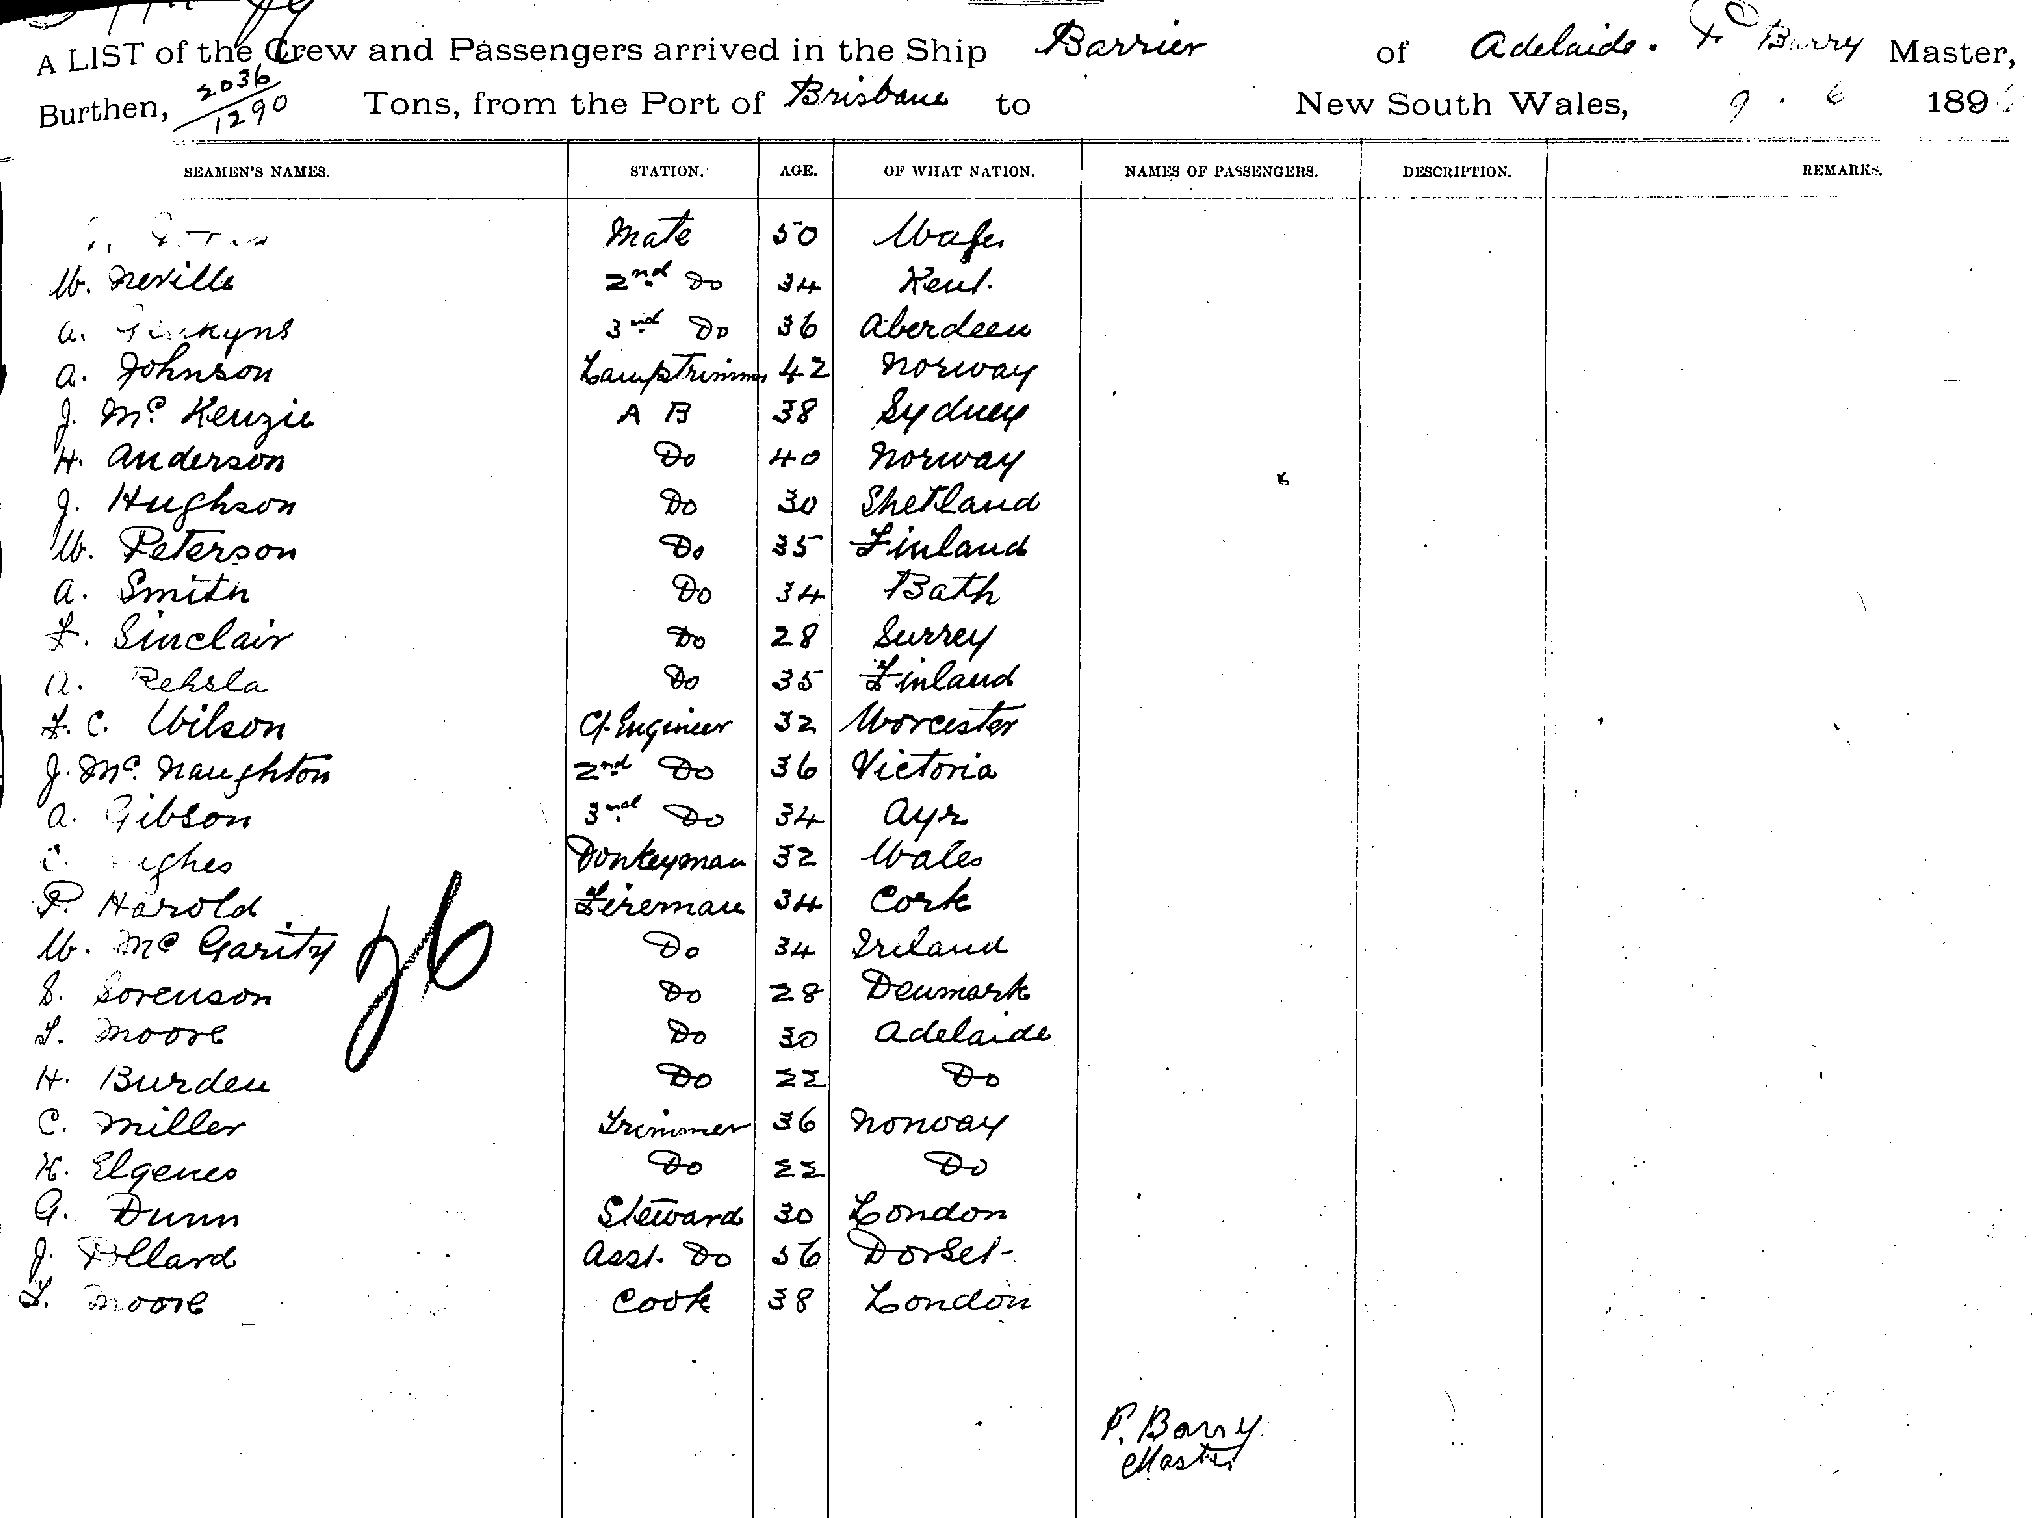 A LIST of the Crew and Passengers arrived in the Ship Barrier of Adelaide. Barry Master,
Burthen, 2036/1290 Tons, from the Port of Brisbane to New South Wales, 9 . 6 189
SEAMEN'S NAMES. STATION. AGE. OF WHAT NATION. NAMES OF PASSENGERS. DESCRIPTION. REMARKS.
Mate 50
W. Neville 2nd Do 34 Kent.
a. 3rd Do 36 Aberdeen
a. Johnson Lamptrimmer 42 Norway
J. Mc Kenzie A B 38 Sydney
H. Anderson Do 40 Norway
J. Hughson Do 30 Shetland
W. Peterson Do 35 Finland
a. Smith Do 34 Bath
F. Sinclair Do 28 Surrey
a. Do 35 Finland
F. C. Wilson Cf. Engineer 32 Worcester
J. Mc. Naughton 2nd Do 36 Victoria
a. Gibson 3rd Do 34 Ayr
Donkeyman 32 Wales
P. Harold Fireman 34 Cork
W. Mc Garity Do 34 Ireland
S. Sorenson Do 28 Denmark
T. Moore Do 30 Adelaide
H. Burden Do 22 Do
C. Miller Trimmer 36 Norway
H. Elgenes Do 22 Do
G. Dunn Steward 30 London
J. Pollard Asst. Do 56 Dorset
T. Moore Cook 38 London
26
P. Barry
Master